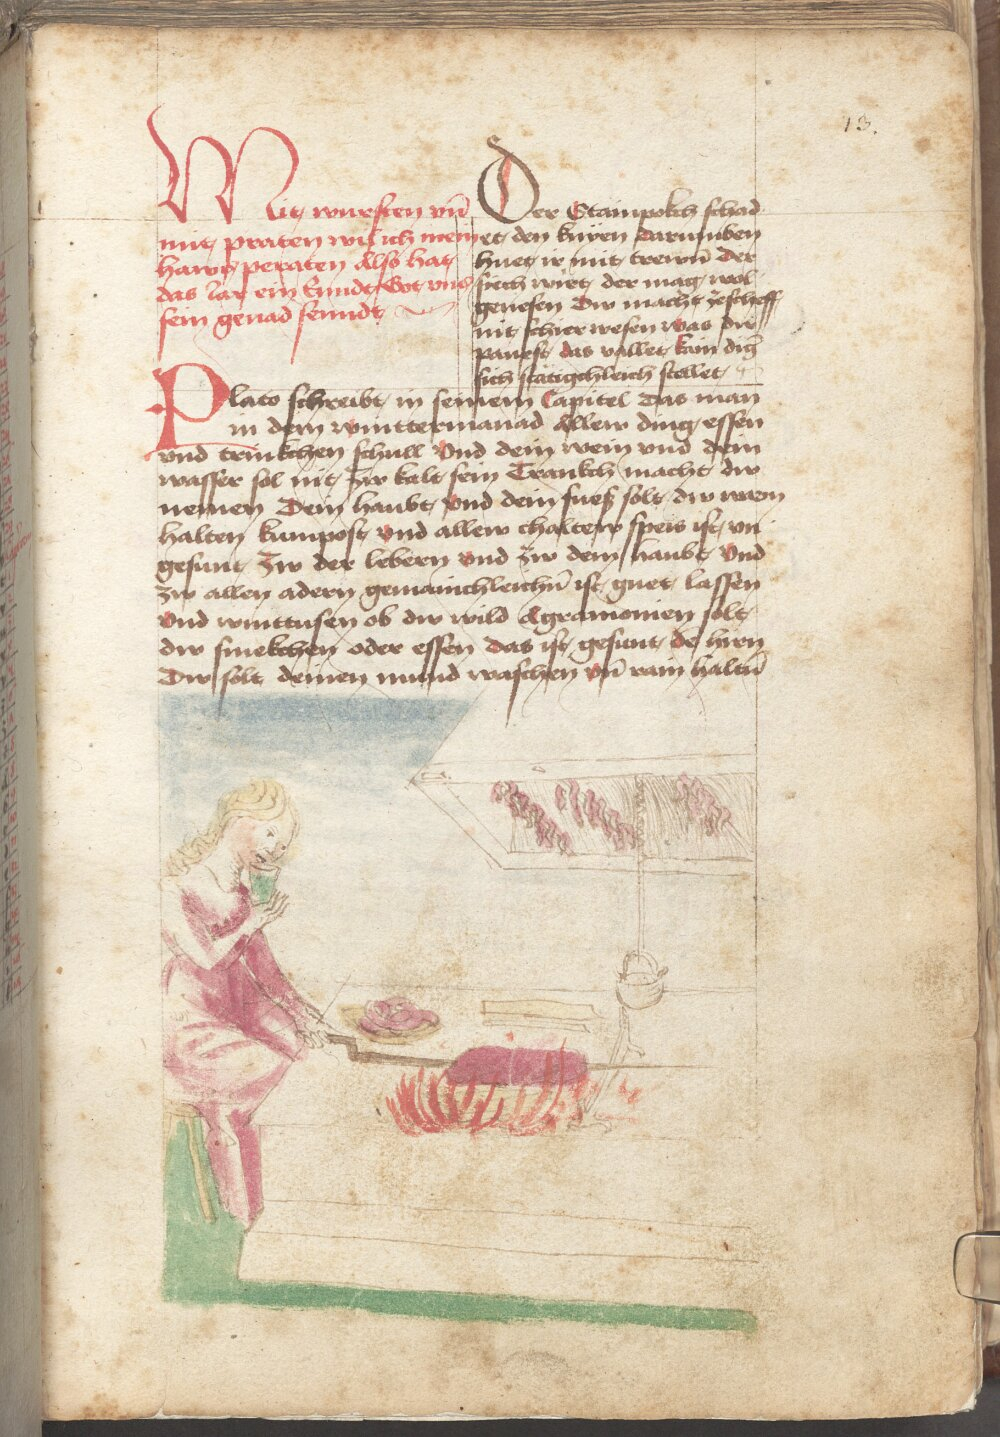 13.
Mit wursten vn̄
mit praten wil ich mein
hawß peraten Also hat
das Jar ein Enndt Got vns
sein genad senndt
Der Stainpokch schad
et den knyen darumben
huet ir mit trewn̄ Der
siech wirt der mag wol
genesen Dw macht
nit schier wesen was dw
pawest das vallet kain ding
sich statigchleich stellet
Plato schreibt in seinem Capitel Das man
in dem winttermanad Allew ding essen
vnd trinkchen schull Vnd dem wein vnd dem
wasser sol nit zw kalt sein Trankch macht dw
nemen Dein haubt Vnd dein fuess solt dw warm
halten kumpost Vnd allew chaltew speis ist vn
gesunt Zw der lebern Vnd zw dem haubt Vnd
zw allen adern gemainchleichn̄ ist guet lassen
Vnd winttusen ob dw wild Agramonien solt
dw smekchen oder essen Das ist gesunt de hirn
Dw solt deinen mund waschen vn̄ rain haltn̄